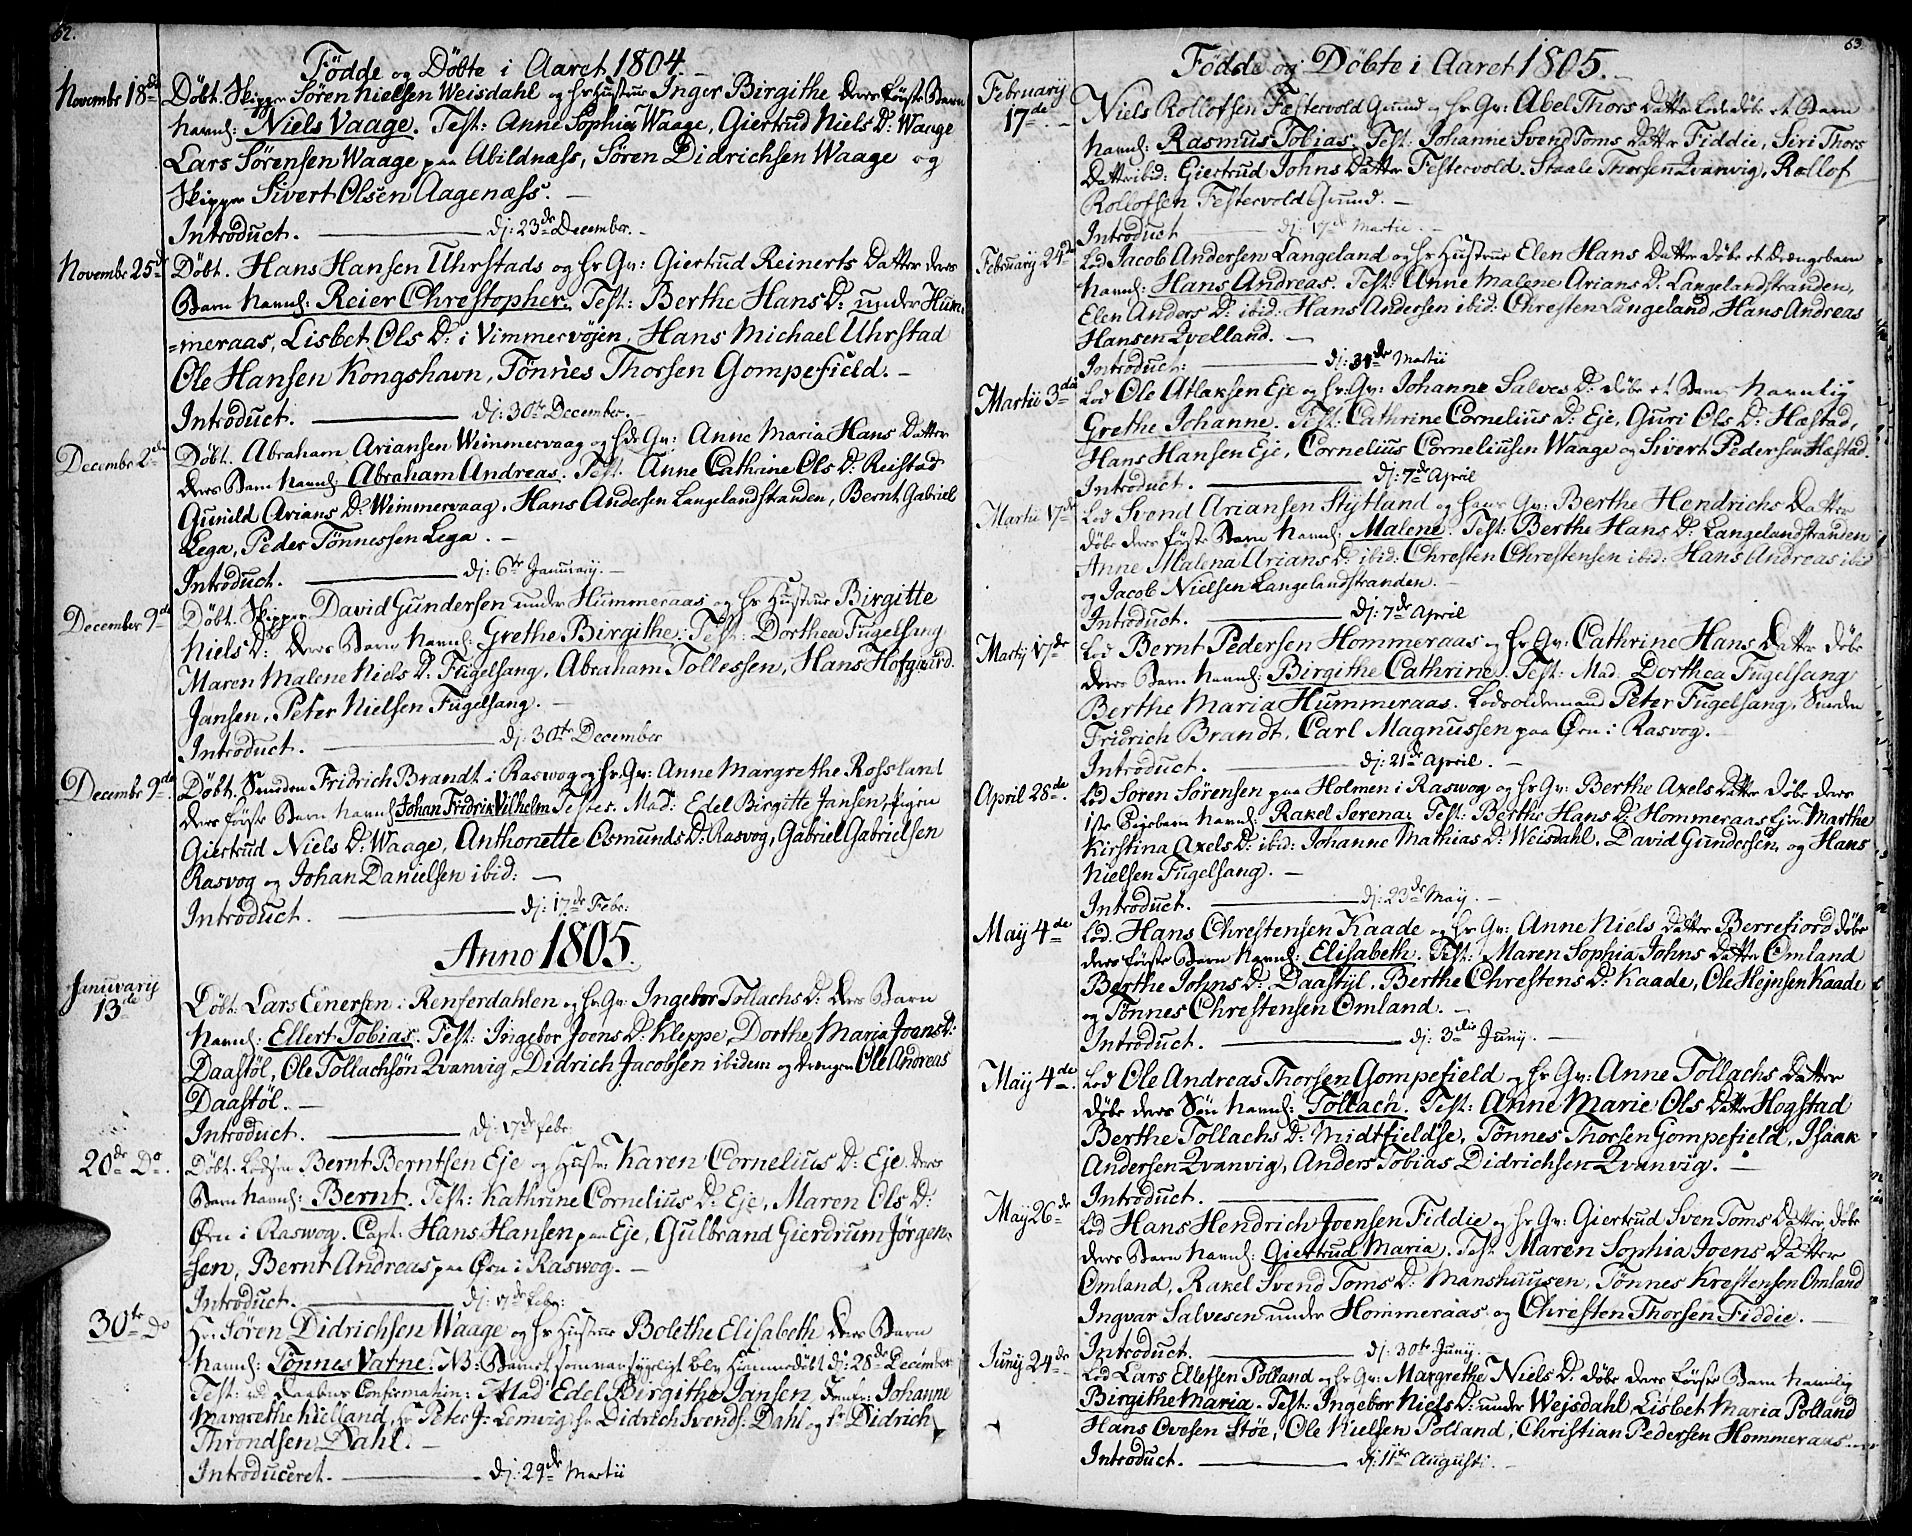 62.
Födde og Döbte i Aaret 1804.
Novembr 18de Döbt. Skipper Sören Nielsen Weisdahl og hs Hustrue Inger Birgithe deres förste Barn
navnl: Niels Vaage. Test: Anne Sophia Waage, Giertrud Niels D: Waage
Lars Sörensen Waage paa Abildnæss, Sören Didrichsen Waage og
Skipper Sivert Olsen Aagenæss. —
Introduct. — dj: 23de December. —
Novembr 25de Döbt. Hans Hansen Uhrstads og hs Qv: Giertrud Reinerts Datter deres
Barn navnl: Reier Chrestopher. Test: Berthe Hans D: under Hum-
=meraas, Lisbet Ols D: i Vimmervöjen, Hans Michael Uhrstad
Ole Hansen Kongshavn, Tönnes Thorsen Gompefield. —
Introduct. — dj: 30te December. —
December 2den Döbt. Abraham Ariansen Wimmervaag og hs Qv: Anne Maria Hans Datter
deres Barn navnl: Abraham Andreas. Test: Anne Cathrine Ols D: Reistad
Gunild Arians D: Wimmervaag, Hans Andersen Langelandstranden, Bernt Gabriel
Lega, Peder Tönnessen Lega. —
Introduct. — dj: 6te Januarij. —
December 9de Döbt. Skipper David Gundersen under Hummeraas og hs Hustrue Birgitte
Niels D: deres Barn navnl: Grethe Birgithe. Test: Dorthea Fugelsang
Maren Malene Niels D: Fugelsang, Abraham Tollessen, Hans Hofgaard
Jansen, Peter Nielsen Fugelsang. —
Introduct. — dj: 30te December
Decembr 9de Döbt. Smeden Fridrich Brandt i Raswog og hs Qv: Anne Margrethe Rossland
deres förste Barn navnl: Johan Fridrik Vilhelm Testes. Mad: Edel Birgitte Jansen, Pigen
Giertrud Niels D: Waage, Anthonette Osmunds D: Rasvog, Gabriel Gabrielsen
Rasvog og Johan Danielsen ibid: —
Introduct. — dj: 17de Febr:
Anno 1805.
Januvarij 13de Döbt: Lars Einersen i Renferdahlen og hs Qv: Ingebor Tollachs D: deres Barn
navnl: Ellert Tobias. Test: Ingebor Joens D: Kleppe, Dorthe Maria Joens D:
Daastöl, Ole Tollachsön Qvanvig, Didrich Jacobsen ibidem og drengen Ole Andreas
Daastöl. —
Introduct. — dj: 17de febr:
20de Do. Döbt. Lodsen Bernt Berntsen Eje og Hustr: Karen Cornelius D: Eje deres
Barn navnl: Bernt. Test: Kathrine Cornelius D: Eje, Maren Ols D:
Örn i Raswog. Capt: Hans Hansen paa Eje, Gulbrand Gierdrum Jörgen-
sen, Bernt Andreas paa Örn i Raswog. —
Introduct. — dj: 17de febr:
30te Do Hr: Sören Didrichsen Waage og hs Hustrue Bolethe Elisabeth deres Barn
navnl: Tönnes Vatne. NB: Barnet som var sygeligt blev hjemmedöbt dj: 28de December
Test: ved Daabens Confirmation: Mad Edel Birgithe Jansen, Jomfr: Johanne
Margrethe Kielland, hr Peter J: Lemvig, hr Didrich Svends: Dahl og hr Didrich
Throndsen Dahl. —
Introduceret. — dj: 29de Martii
63.
Födde og Döbte i Aaret 1805. —
Februarij 17de Niels Rollofsen Fæstervold Gruud og hs Qv: Abel Thors Datter lod döbe et Barn
navnl: Rasmus Tobias. Test: Johanne Svend Toms Datter Fiddie, Siri Thors
Datter ibid: Giertrud Johns Datter Festervold. Staale Thorsen Qvanvig, Rollof
Rollofsen Festervold Gruud. —
Introduct — dj: 17de Martii. —
Februarij 24de Lod Jacob Andersen Langeland og hs Hustrue Elen Hans Datter döbe et drengebarn
navnl: Hans Andreas. Test: Anne Malene Arians D: Langelandstranden,
Elen Anders D: ibid: Hans Andersen ibid: Chresten Langeland, Hans Andreas
Hansen Qvelland. —
Introduct: — dj: 31de Martii
Martii 3die Lod Ole Atlaksen Eje og hs Qv: Johanne Salves D: döbe et Barn navnlig
Grethe Johanne. Test: Cathrine Cornelius D: Eje, Guri Ols D: Hæstad,
Hans Hansen Eje, Cornelius Corneliusen Waage og Sivert Pedersen Hæstad.
Introduct. — dj: 7de April
Martii 17de Lod Svend Ariansen Stytland og hans Qv: Berthe Hendrichs Datter
döbe deres förste Barn navnl: Malene. Test: Berthe Hans D: Langelandstranden
Anne Malena Arians D: ibid: Chresten Chrestensen ibid: Hans Andreas ibid
og Jacob Nielsen Langelandstranden. —
Introduct. — dj: 7de April
Martij 17de Lod Bernt Pedersen Hommeraas og hs Qv: Cathrine Hans Datter döbe
deres Barn navnl: Birgithe Cathrine. Test: Mad. Dorthea Fugelsang
Berthe Maria Hummeraas. Lodsoldermand Peter Fugelsang, Smeden
Fridrich Brandt, Carl Magnussen paa Örn i Rasvog. —
Introduct. — dj: 21de April. —
April 28de. Lod Sören Sörensen paa Holmen i Raswog og hs Qv: Berthe Axels Datter döbe deres
1ste Pigebarn navnl: Rakel Serena. Test: Berthe Hans D: Hommeraas, Marthe
Kirstina Axels D: ibid: Johanne Mathias D: Weisdahl. David Gundersen, og Hans
Nielsen Fugelsang. —
Introduct. — dj: 23de Maij. —
Maij 4de Lod. Hans Chrestensen Kaade og hs Qv: Anne Niels Datter Berrefiord döbe
deres förste Barn navnl: Elisabeth. Test: Maren Sophia Johns Datter Omland
Berthe Johns D: Daastyl. Berthe Chrestens D: Kaade, Ole Hejnsen Kaade
og Tönnes Chrestensen Omland. —
Introduct. — dj: 3die Junij. —
Maij 4de. Lod Ole Andreas Thorsen Gompefield og hs Qv: Anne Tollachs Datter
döbe deres Sön navnl: Tollach. Test: Anne Marie Ols Datter Hogstad
Berthe Tollachs D: Midtfieldse, Tönnes Thorsen Gompefield, Isaak
Andersen Qvanvig, Anders Tobias Didrichsen Qvanvig. —
Introduct. —
Maij 26de Lod Hans Hendrich Joensen Fiddie og hs Qv: Giertrud Sven Toms Datter, döbe
deres Barn navnl: Giertrud Maria. Test: Maren Sophia Joens Datter
Omland, Rakel Svend Toms D: Manshuusen, Tönnes Krestensen Omland
Ingvar Salvesen under Hommeraas og Chresten Thorsen Fiddie. —
Introduct. — dj: 30te Junij. —
Junij 24de Lod Lars Ellessen Polland og hs Qv: Margrethe Niels D: döbe deres förste Barn navnlig
Birgithe Maria. Test: Ingebor Niels D: under Wejsdahl, Lisbet Maria Polland
Hans Ovesen Stöe, Ole Nielsen Polland, Christian Pedersen Hommeraas.
Introduct. — dj: 11te Augusti. —